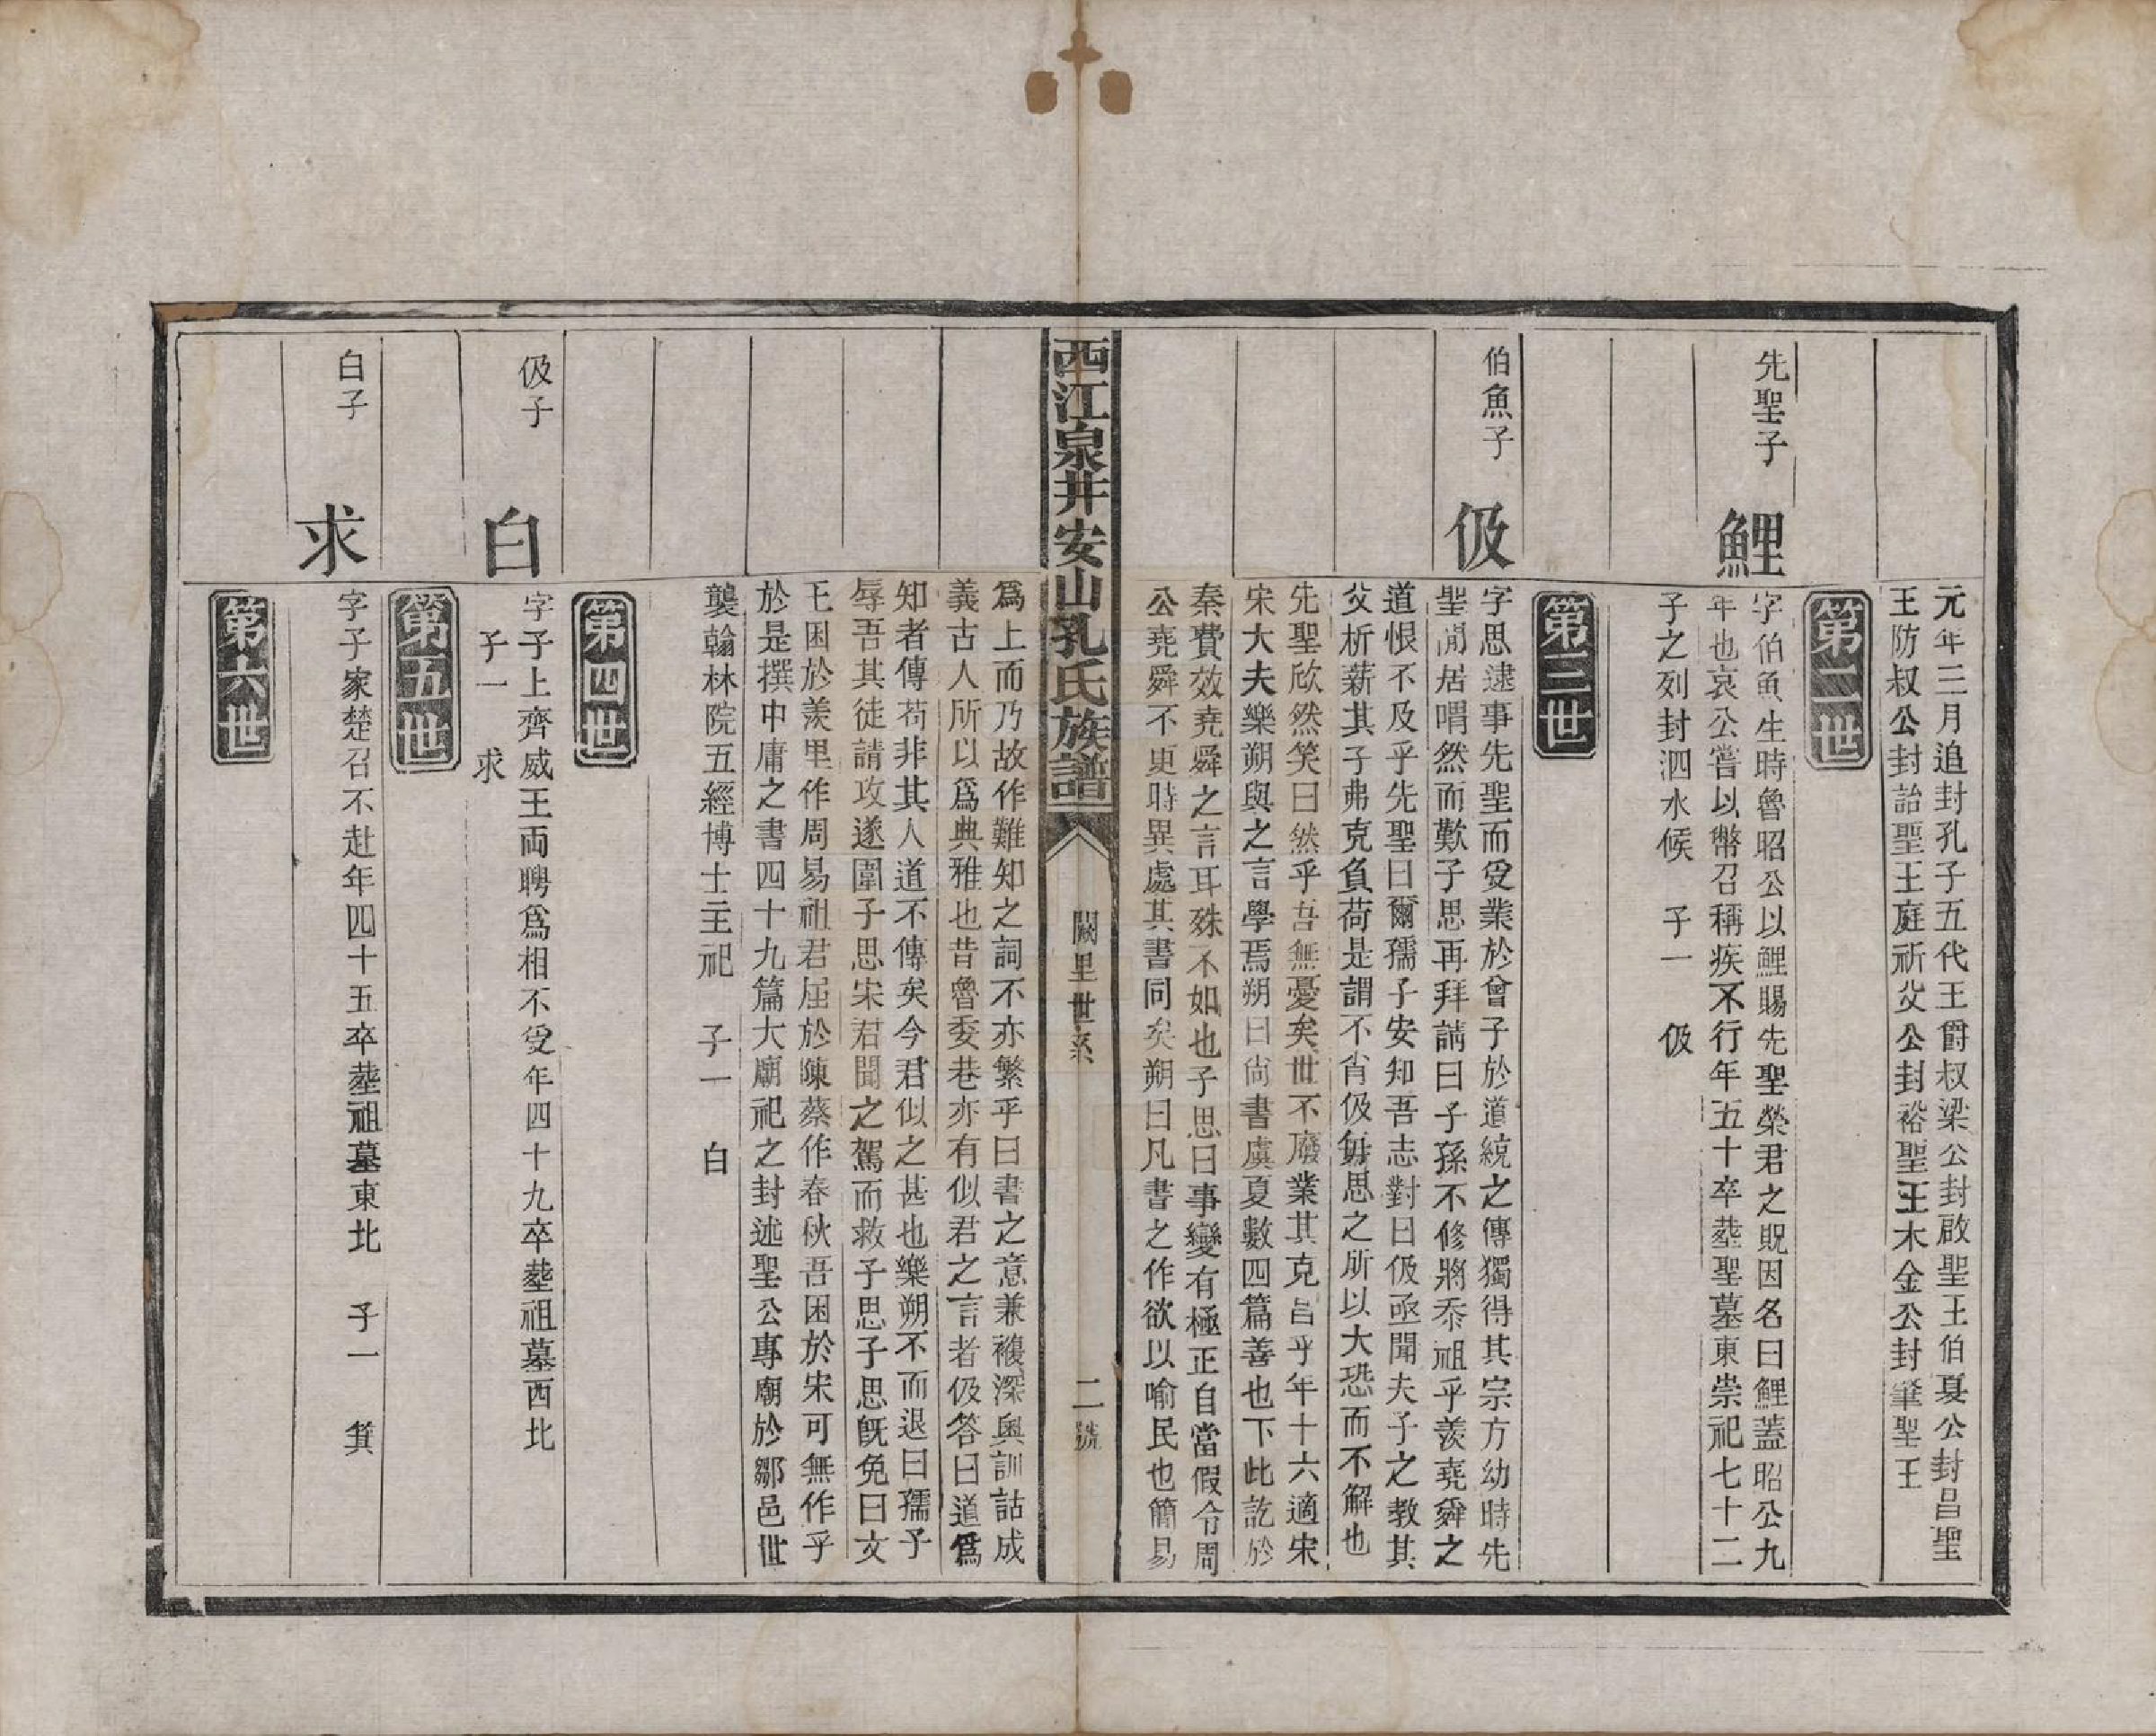 元年三月追封孔子五代王爵叔梁公封啟聖王伯夏公封昌聖
王防叔公封詒聖王庭祈父公封裕聖王木金公封肇聖王
第二世
先聖子
鯉
字伯魚生時魯昭公以鯉賜先聖榮君之貺因名曰鯉蓋昭公九
年也哀公嘗以幣召稱疾不行年五十卒塟聖墓東崇祀七十二
子之列封泗水候 子一 伋
第三世
伯魚子
伋
字思逮事先聖而受業於曾子於道統之傳獨得其宗方幼時先
聖閒居喟然而歎子思再拜請曰子孫不修將忝祖乎羨堯舜之
道恨不及乎先聖曰爾孺子安知吾志對曰伋亟聞夫子之教其
父析薪其子弗克負荷是謂不肖伋每思之所以大恐而不解也
先聖欣然笑曰然乎吾無憂矣世不廢業其克昌乎年十六適宋
宋大夫樂朔與之言學焉朔曰尚書虞夏數四篇善也下此訖於
秦費效堯舜之言耳殊不如也子思曰事變有極正自當假令周
公堯舜不更時異處其書同矣朔曰凡書之作欲以喻民也簡易
西江泉井安山孔氏族譜
闕里世系
二號
爲上而乃故作難知之詞不亦繁乎曰書之意兼複深奧訓詁成
義古人所以爲典雅也昔魯委巷亦有似君之言者伋答曰道爲
知者傳苟非其人道不傳矣今君似之甚也樂朔不而退曰孺子
辱吾其徒請攻遂圍子思宋君聞之駕而救子思子思既免曰文
王困於羑里作周易祖君屈於陳蔡作春秋吾困於宋可無作乎
於是撰中庸之書四十九篇大廟祀之封述聖公專廟於鄒邑世
襲翰林院五經博士主祀 子一 白
第四世
伋子
白
字子上齊威王両聘爲相不受年四十九卒塟祖墓西北
子一 求
第五世
白子
求
字子家楚召不赴年四十五卒塟祖墓東北 子一 箕
第六世